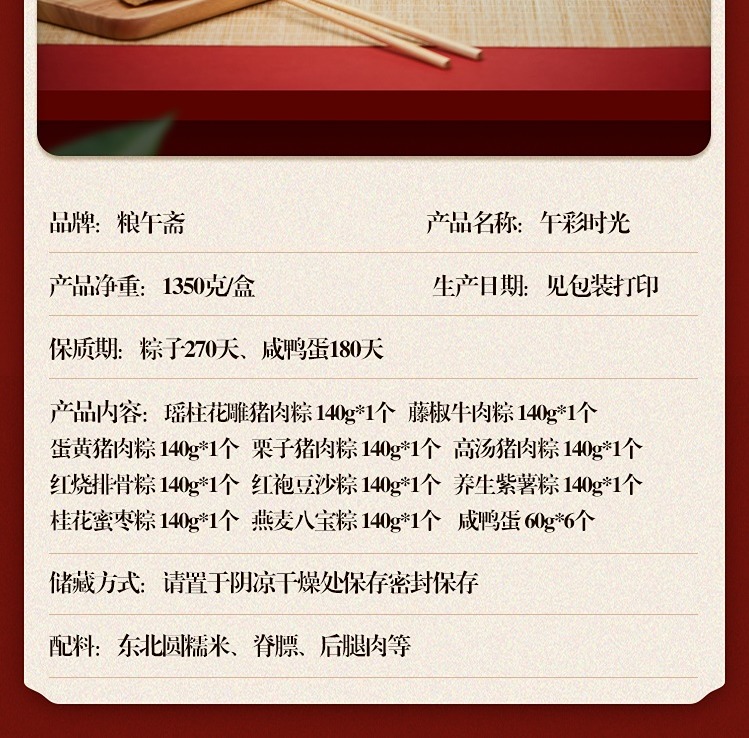 品牌：粮午斋 产品名称：午彩时光
产品净重：1350克/盒 生产日期：见包装打印
保质期：粽子270天、咸鸭蛋180天
产品内容：瑶柱花雕猪肉粽 140g*1个 藤椒牛肉粽 140g*1个
蛋黄猪肉粽 140g*1个 栗子猪肉粽 140g*1个 高汤猪肉粽 140g*1个
红烧排骨粽 140g*1个 红袍豆沙粽 140g*1个 养生紫薯粽 140g*1个
桂花蜜枣粽 140g*1个 燕麦八宝粽 140g*1个 咸鸭蛋 60g*6个
储藏方式：请置于阴凉干燥处保存密封保存
配料：东北圆糯米、脊膘、后腿肉等